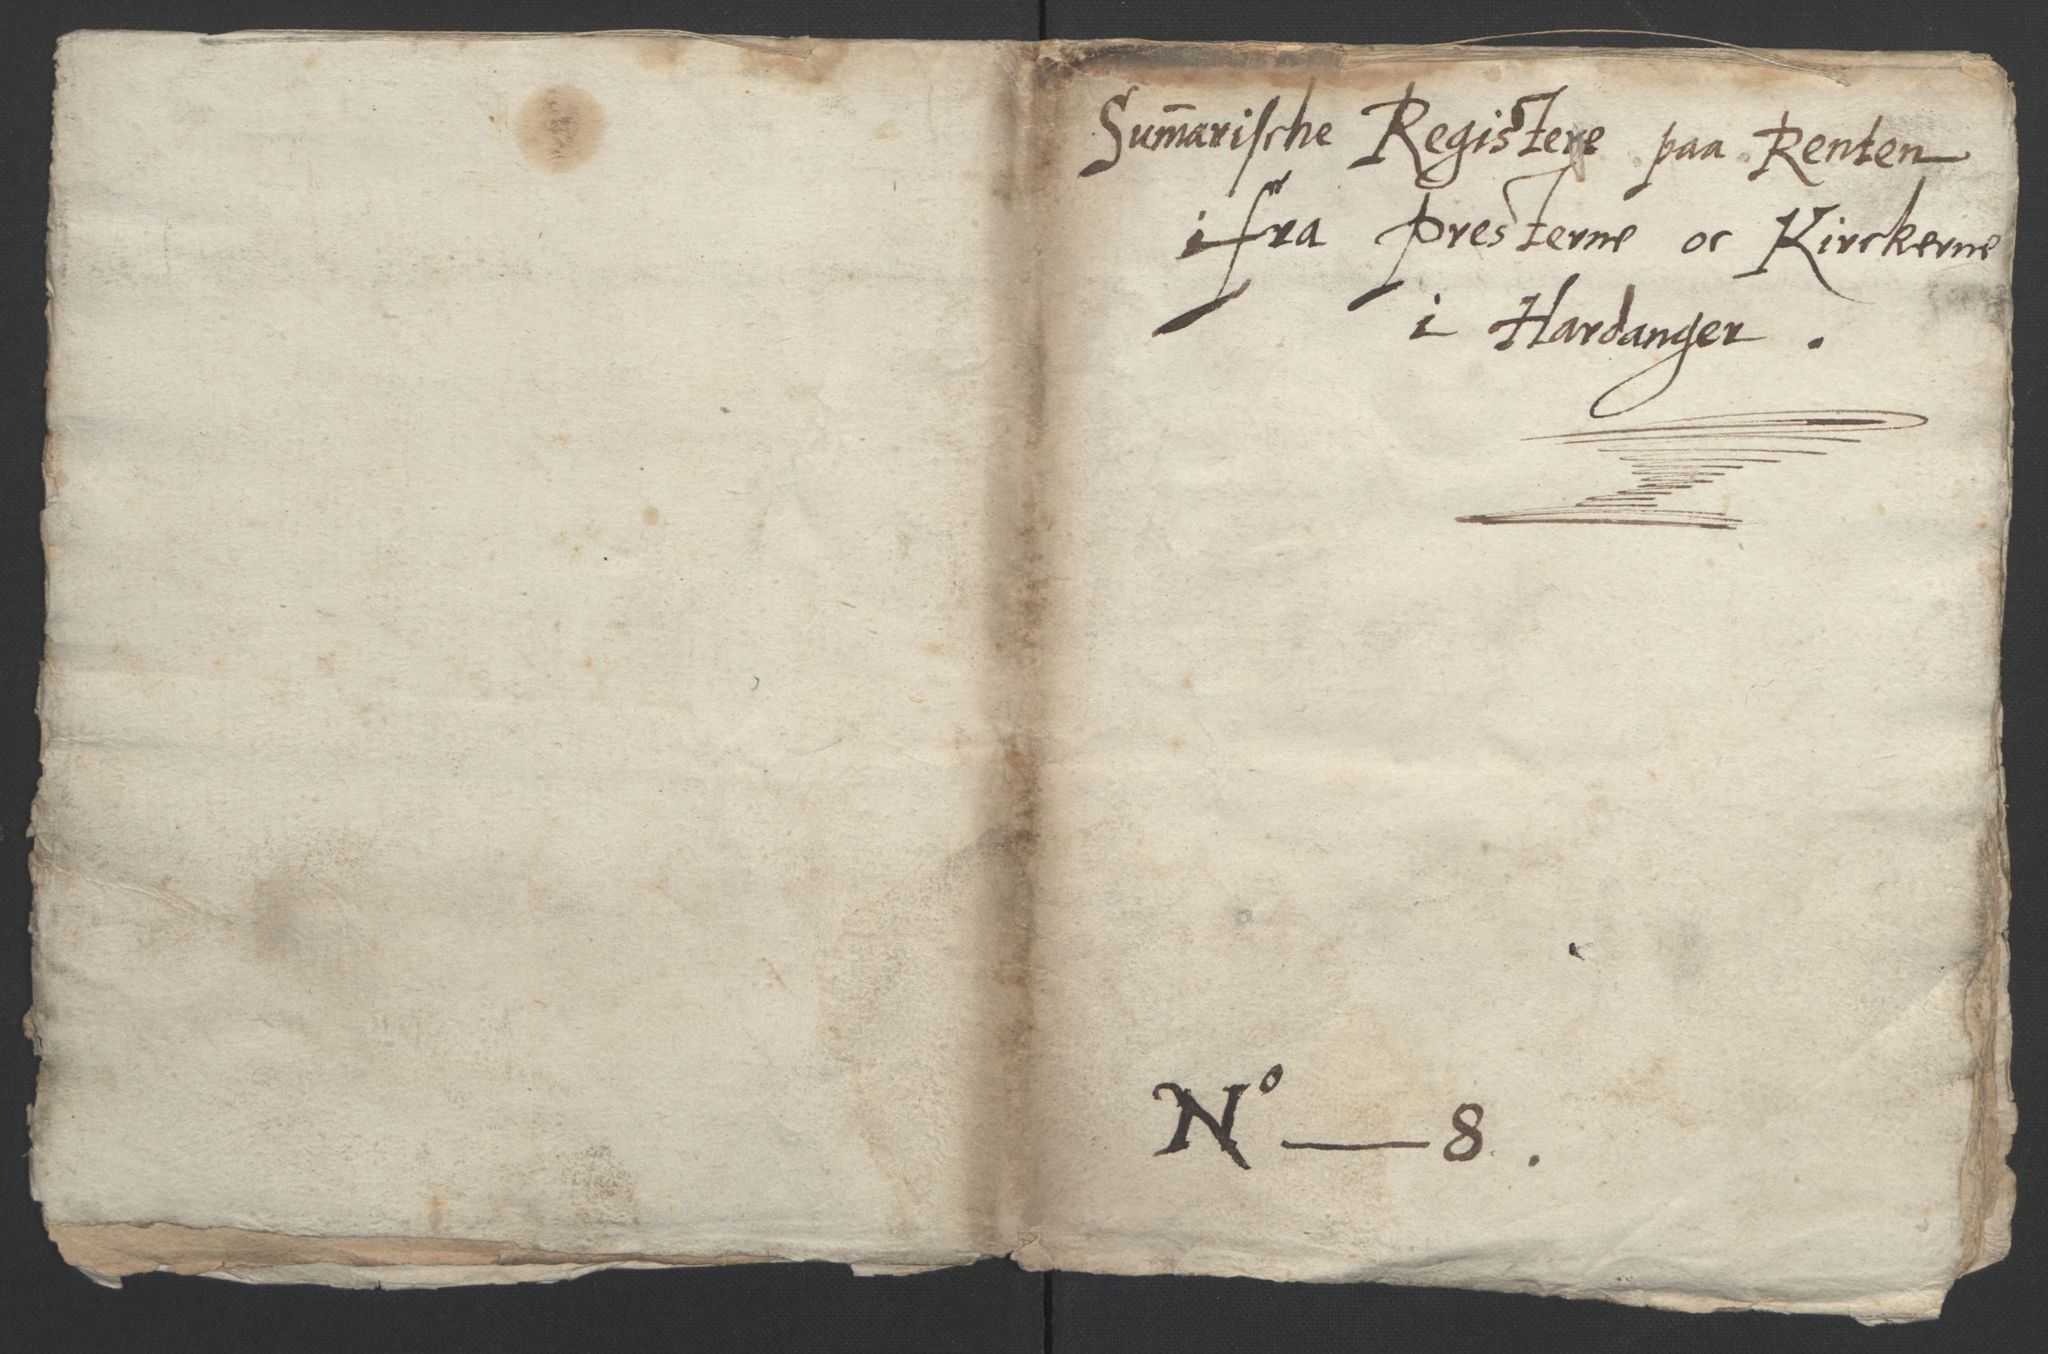 Sum̄arische Registere paa Renten
ifra Presterne oc Kirckerne
i Hardanger .
No — 8 .